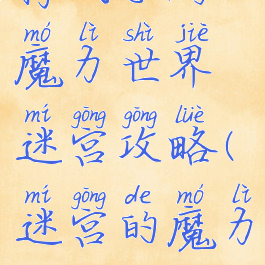 mó lì shì jiè
魔力世界
mí gōng gōng lüè
迷宫攻略(
mí gōng de mó lì
迷宫的魔力